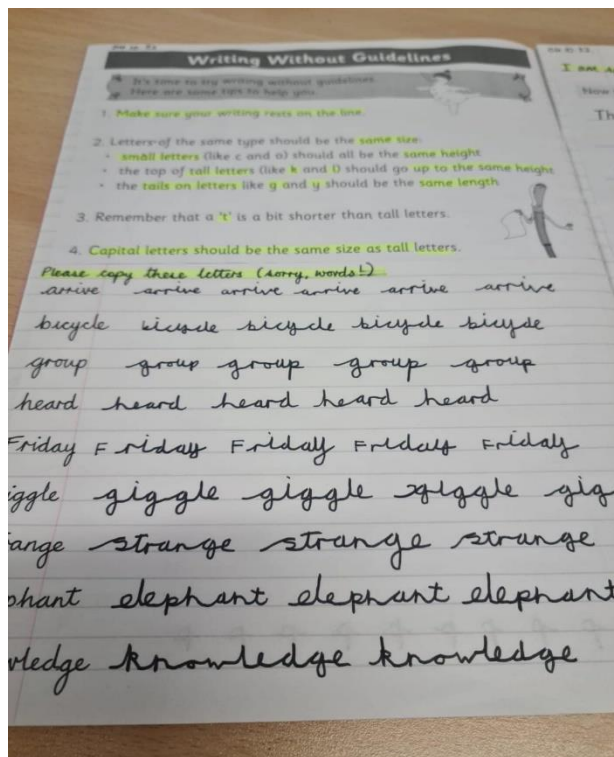 Writing Without Guidelines
It's time to try writing without guidelines.
Here are some tips to help you.
1. Make sure your writing rests on the line.
2. Letters of the same type should be the same size:
• small letters (like c and a) should all be the same height
• the top of tall letters (like k and l) should go up to the same height
• the tails on letters like g and y should be the same length
3. Remember that a 't' is a bit shorter than tall letters.
4. Capital letters should be the same size as tall letters.
Please copy these letters (sorry, words!)
arrive arrive arrive arrive arrive arrive
bicycle bicycle bicycle bicycle bicycle
group group group group group
heard heard heard heard heard
Friday Friday Friday Friday Friday
iggle giggle giggle giggle gig
ange strange strange strange
phant elephant elephant elephant
wledge knowledge knowledge
I am
Now
Th